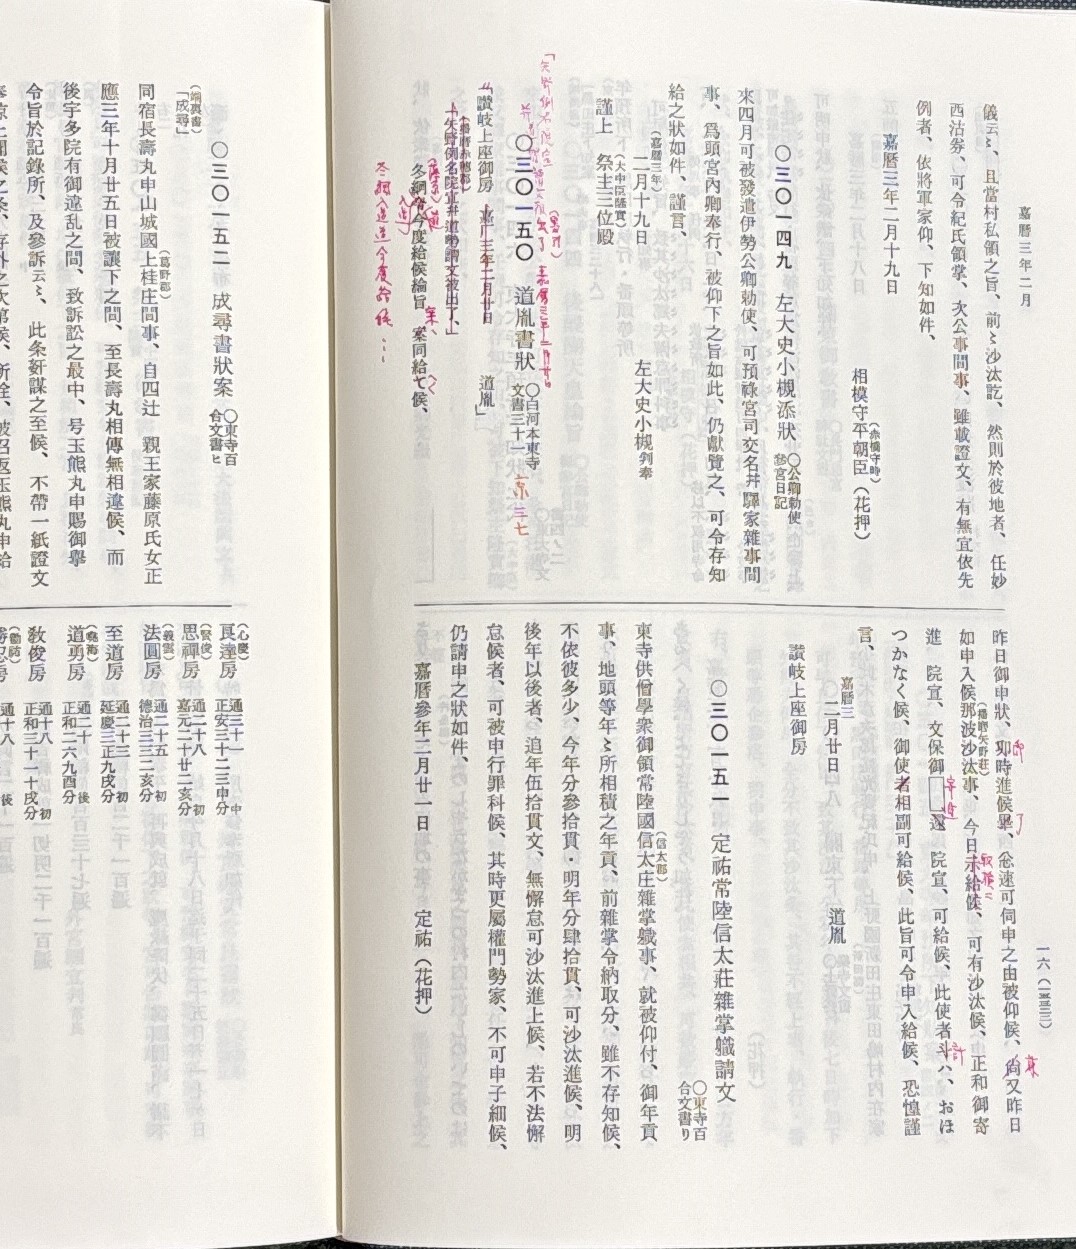 嘉曆三年二月
儀云〻、且當村私領之旨、前〻沙汰訖、然則於彼地者、任妙
西沽劵、可令紀氏領掌、次公事間事、雖載證文、有無宜依先
例者、依將軍家仰、下知如件、
嘉曆三年二月十九日
相模守平朝臣（花押）
（赤橋守時）
〇三〇一四九 左大史小槻添狀 〇公卿勅使
參宮日記
來四月可被發遣伊勢公卿勅使、可預祿宮司交名幷驛家雜事間
事、爲頭宮內卿奉行、被仰下之旨如此、仍獻覽之、可令存知
給之狀如件、謹言、
（嘉曆三年）
二月十九日
左大史小槻判奉
（大中臣隆實）
謹上 祭主三位殿
〇三〇一五〇 道胤書狀 〇白河本東寺
文書三十一
京三七
「讃岐上座御房 嘉曆三年二月廿日 道胤」
（播磨赤穗郡）
「矢野例名院宣幷道勇請文被出了、」
今度給候綸旨 案同給候、
今度給候…
昨日御申狀、卽時進候畢、忩速可伺申之由被仰候、尙又昨日
（播磨矢野莊）
如申入候那波沙汰事、今日示給候、可有沙汰候、正和御寄
進 院宣、文保御□還 院宣、可給候、此使者斗ハ、おほ
つかなく候、御使者相副可給候、此旨可令申入給候、恐惶謹
言、
嘉曆三
〇二月廿日 道胤
讃岐上座御房
〇三〇一五一 定祐常陸信太莊雜掌職請文 〇東寺百
合文書り
（信太郡）
東寺供僧學衆御領常陸國信太庄雜掌職事、就被仰付、御年貢
事、地頭等年〻所相積之年貢、前雜掌令納取分、雖不存知候、
不依彼多少、今年分參拾貫・明年分肆拾貫、可沙汰進候、明
後年以後者、追年伍拾貫文、無懈怠可沙汰進上候、若不法懈
怠候者、可被申行罪科候、其時更屬權門勢家、不可申子細候、
仍請申之狀如件、
嘉曆參年二月廿一日 定祐（花押）
一六（一三三三）
〇三〇一五二 成尋書狀案 〇東寺百
合文書ヒ
（端裏書）
「成尋」
（葛野郡）
同宿長壽丸申山城國上桂庄間事、自四辻 親王家藤原氏女正
應三年十月廿五日被讓下之間、至長壽丸相傳無相違候、而
後宇多院有御違乱之間、致訴訟之最中、号玉熊丸申賜御擧
令旨於記錄所、及參訴云〻、此条姧謀之至候、不帶一紙證文
（心慶）
良達房 通三十一 中
正安三十二三申分
（賢俊）
思禪房 通二十八 初
嘉元二十廿二亥分
（義雲）
法圓房 通二十五 初
德治三三二亥分
至道房 通二十三 初
延慶三正九戌分
道勇房 通二十 後
正和二六九酉分
教俊房 通十八 初
正和三十一十戌分